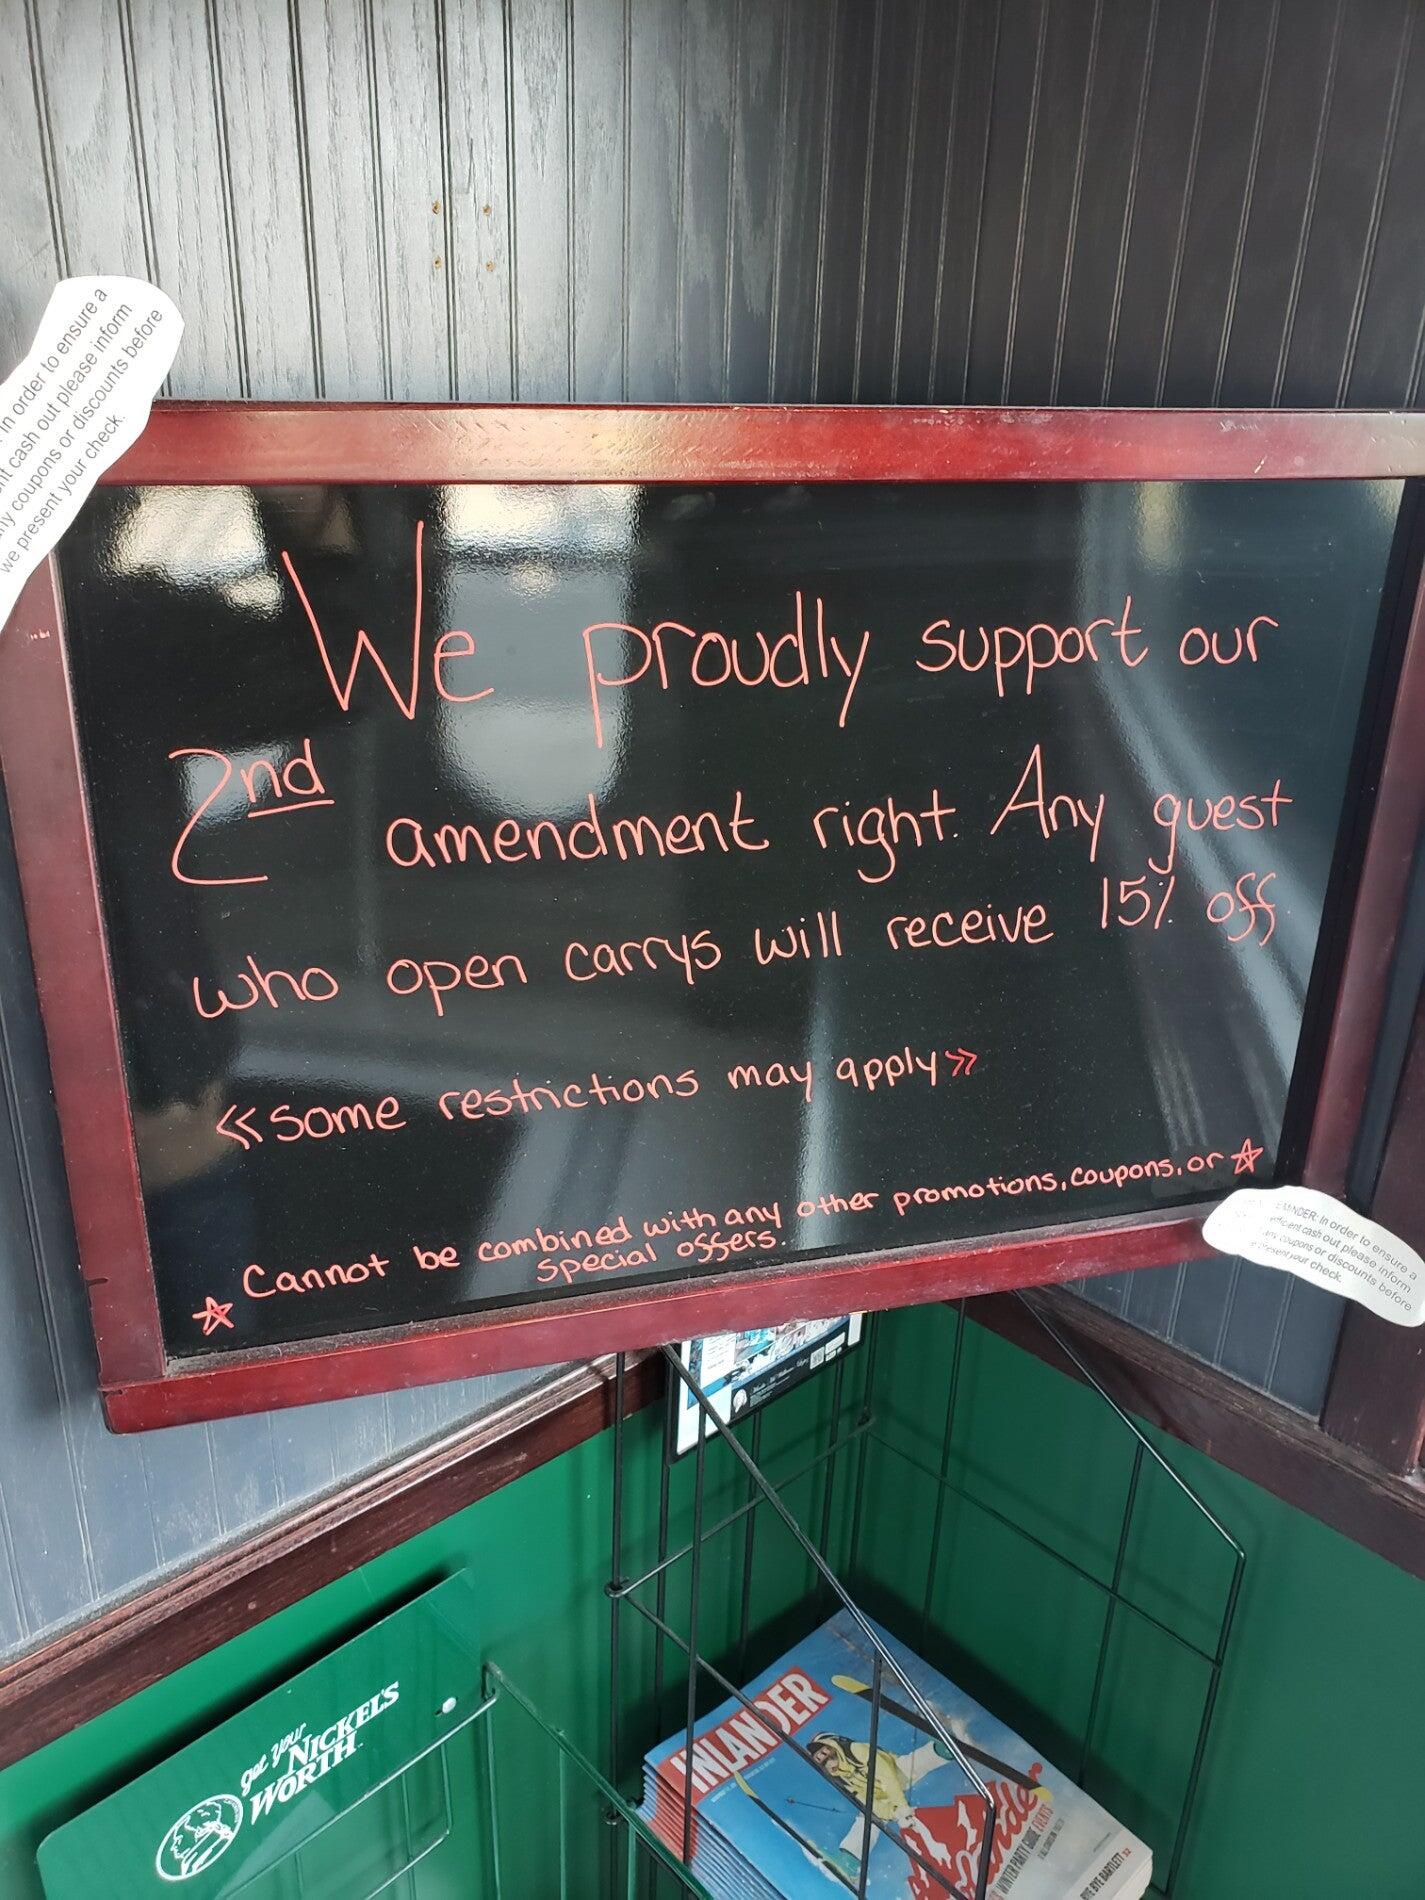 in order to ensure a
cash out please inform
coupons or discounts before
we present your check.
We proudly support our
2nd amendment right. Any guest
who open carrys will receive 15% off
«some restrictions may apply»
Cannot be combined with any other promotions, coupons, or
special offers.
REMINDER: In order to ensure a
efficient cash out please inform
any coupons or discounts before
present your check.
get your
NICKEL'S
WORTH
INLANDER
WINTER PARTY GUIDE EVENTS
BYE BYE BARTLETT